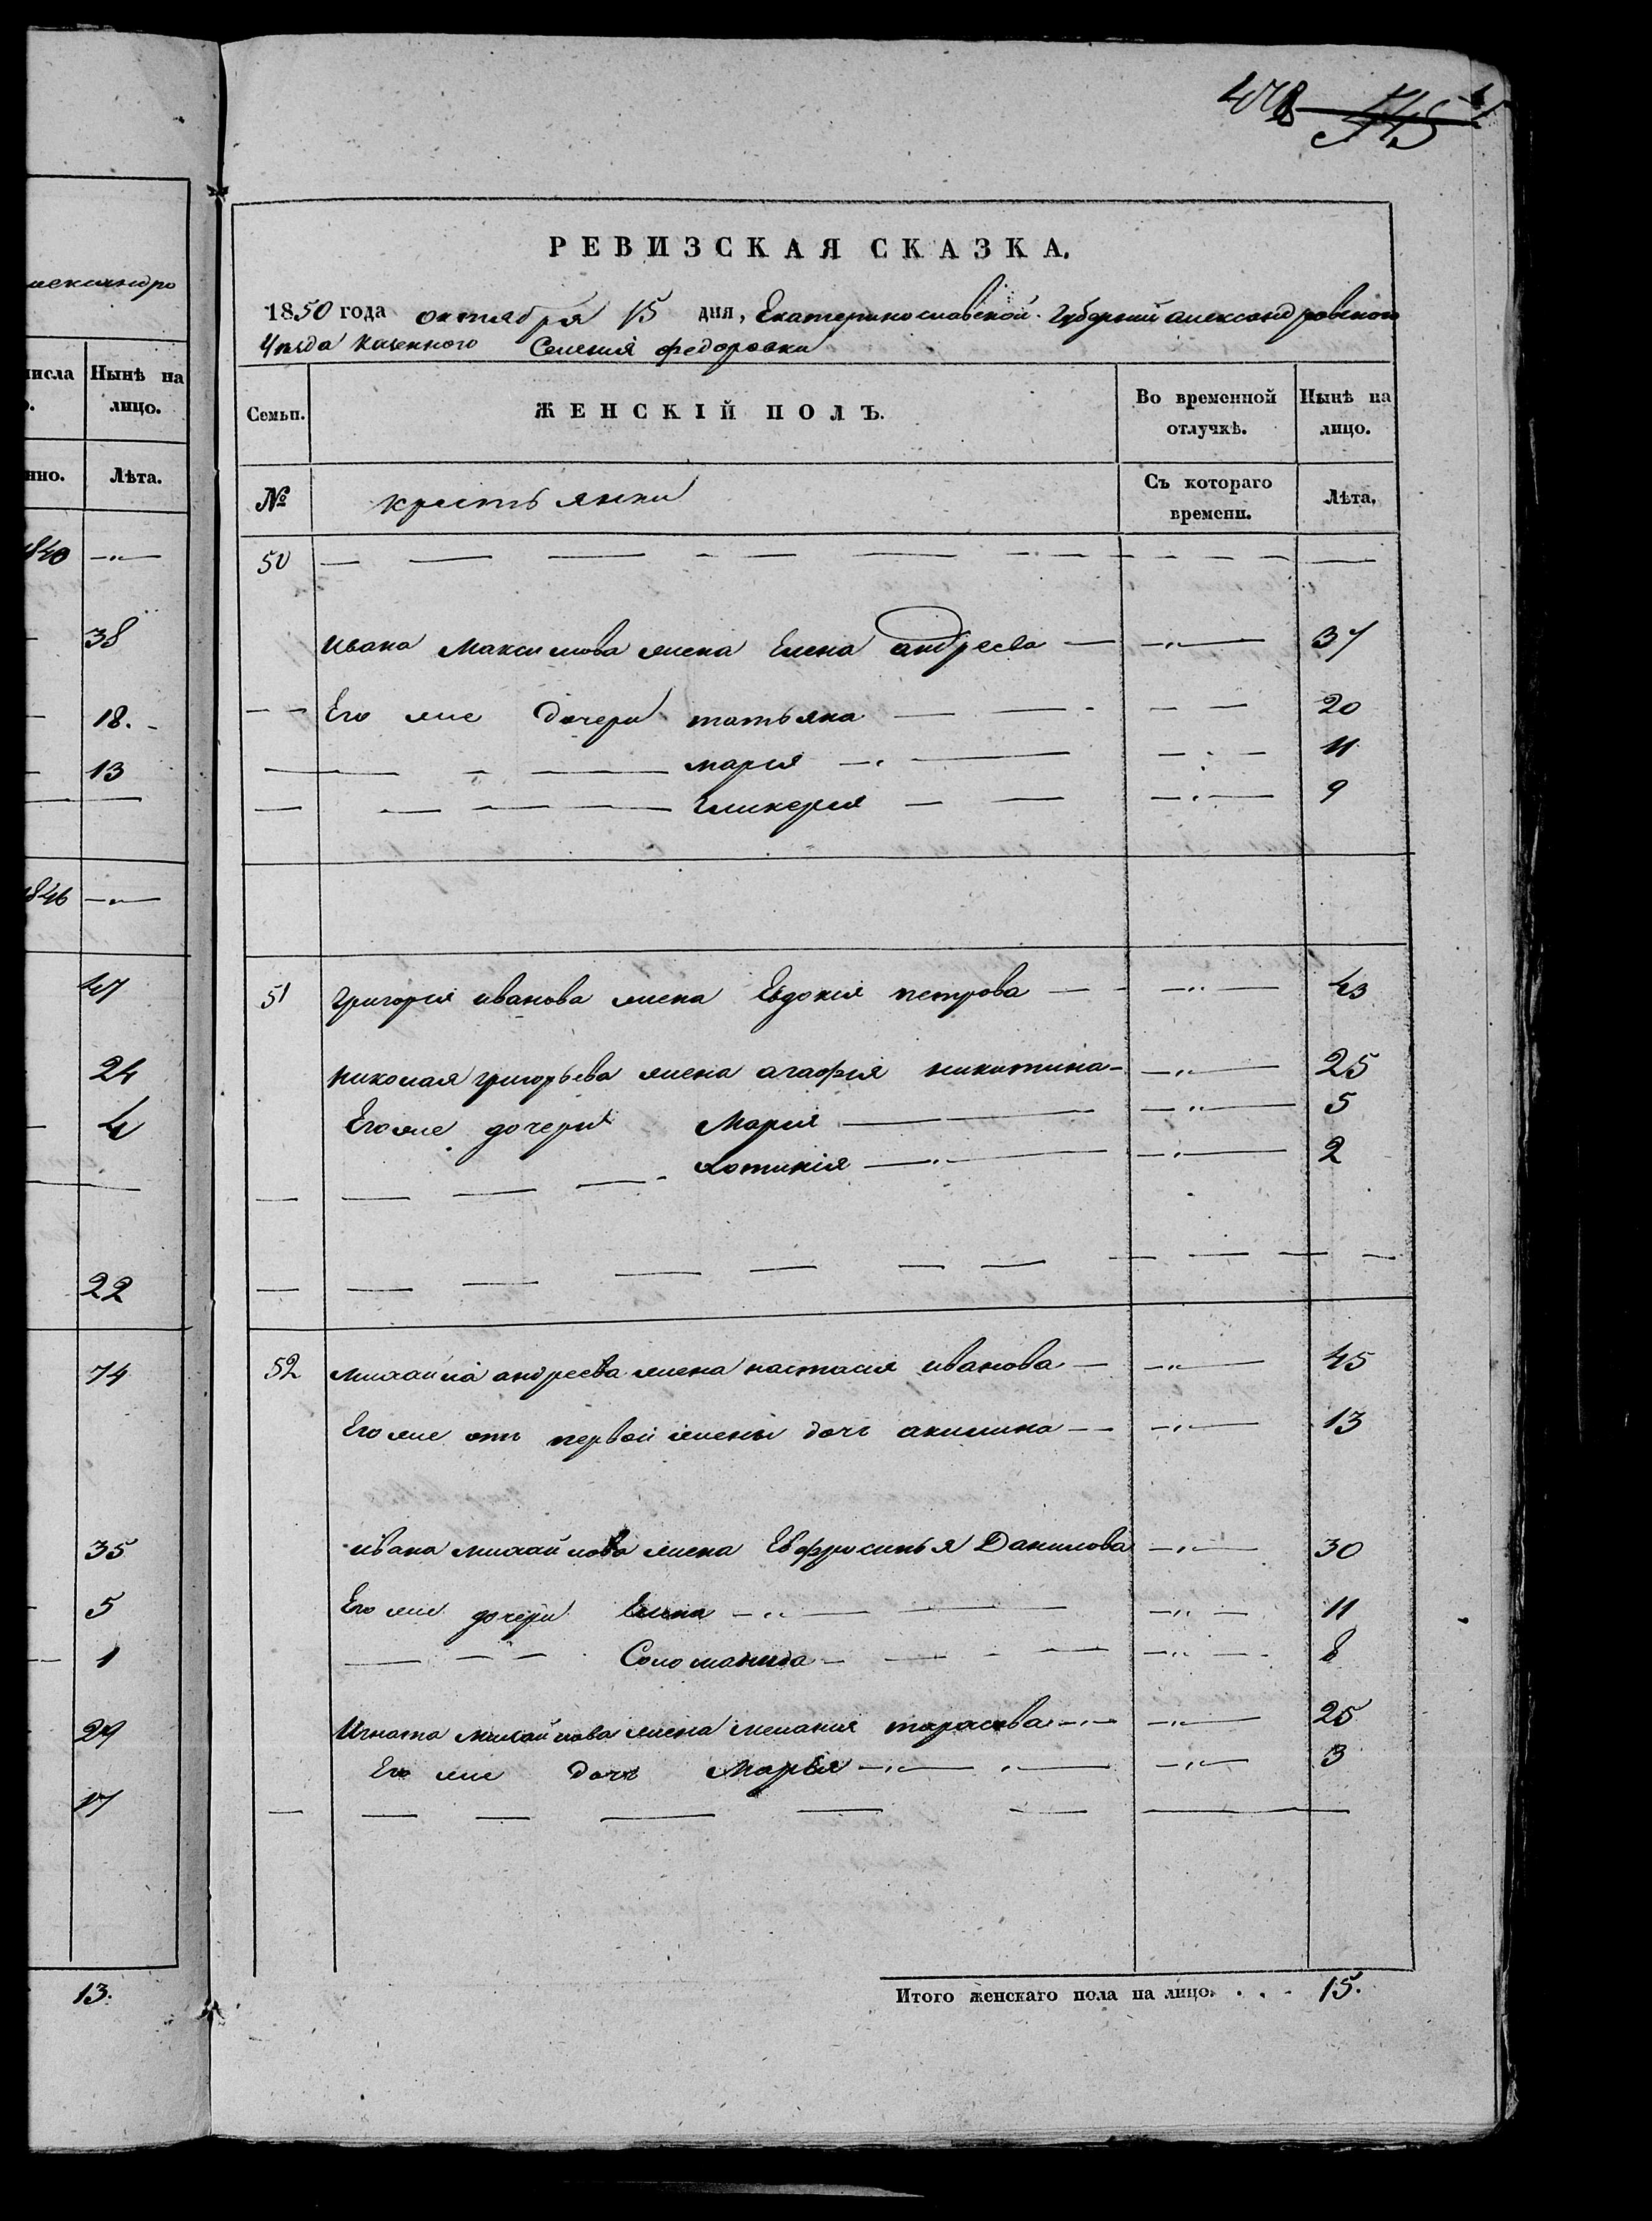 478 545
лександро
числа Нынѣ на
о. лицо.
нно. Лѣта.
1840 —„—
38
18.
13
1846 —„—
47
24
4
22
74
35
5
1
29
17
13.
РЕВИЗСКАЯ СКАЗКА.
1850 года октября 15 дня, Екатеринославской Губернии александровского
Уезда казенного Селения федоровки
Семьи. ЖЕНСКІЙ ПОЛЪ. Во временной отлучкѣ. Нынѣ на лицо.
№ крестьянки Съ котораго времени. Лѣта.
50 — — — — — — — — — —
ивана Максимова жена Елена андреева — —„— 37
— — Его же дочери татьяна — — — — 20
— — — мария — — — — 11
— — — Гликерия — — — — 9
51 григория иванова жена Евдокия петрова — —„— 43
николая григорьева жена агафия никитина — —„— 25
Его же дочери Мария — —„— 5
хотинія — —„— 2
52 михайла андреева жена настасия иванова — —„— 45
Его же отъ первой жены дочь акилина — —„— 13
ивана михайлова жена Евфросинья Данилова —„— 30
Его же дочери Елена —„— —„— 11
— — — Соломанида — —„— 8
Игната михайлова жена мелания тарасова —„— —„— 25
Его же дочь Марья —„— —„— 3
Итого женскаго пола на лицо. . . . 15.